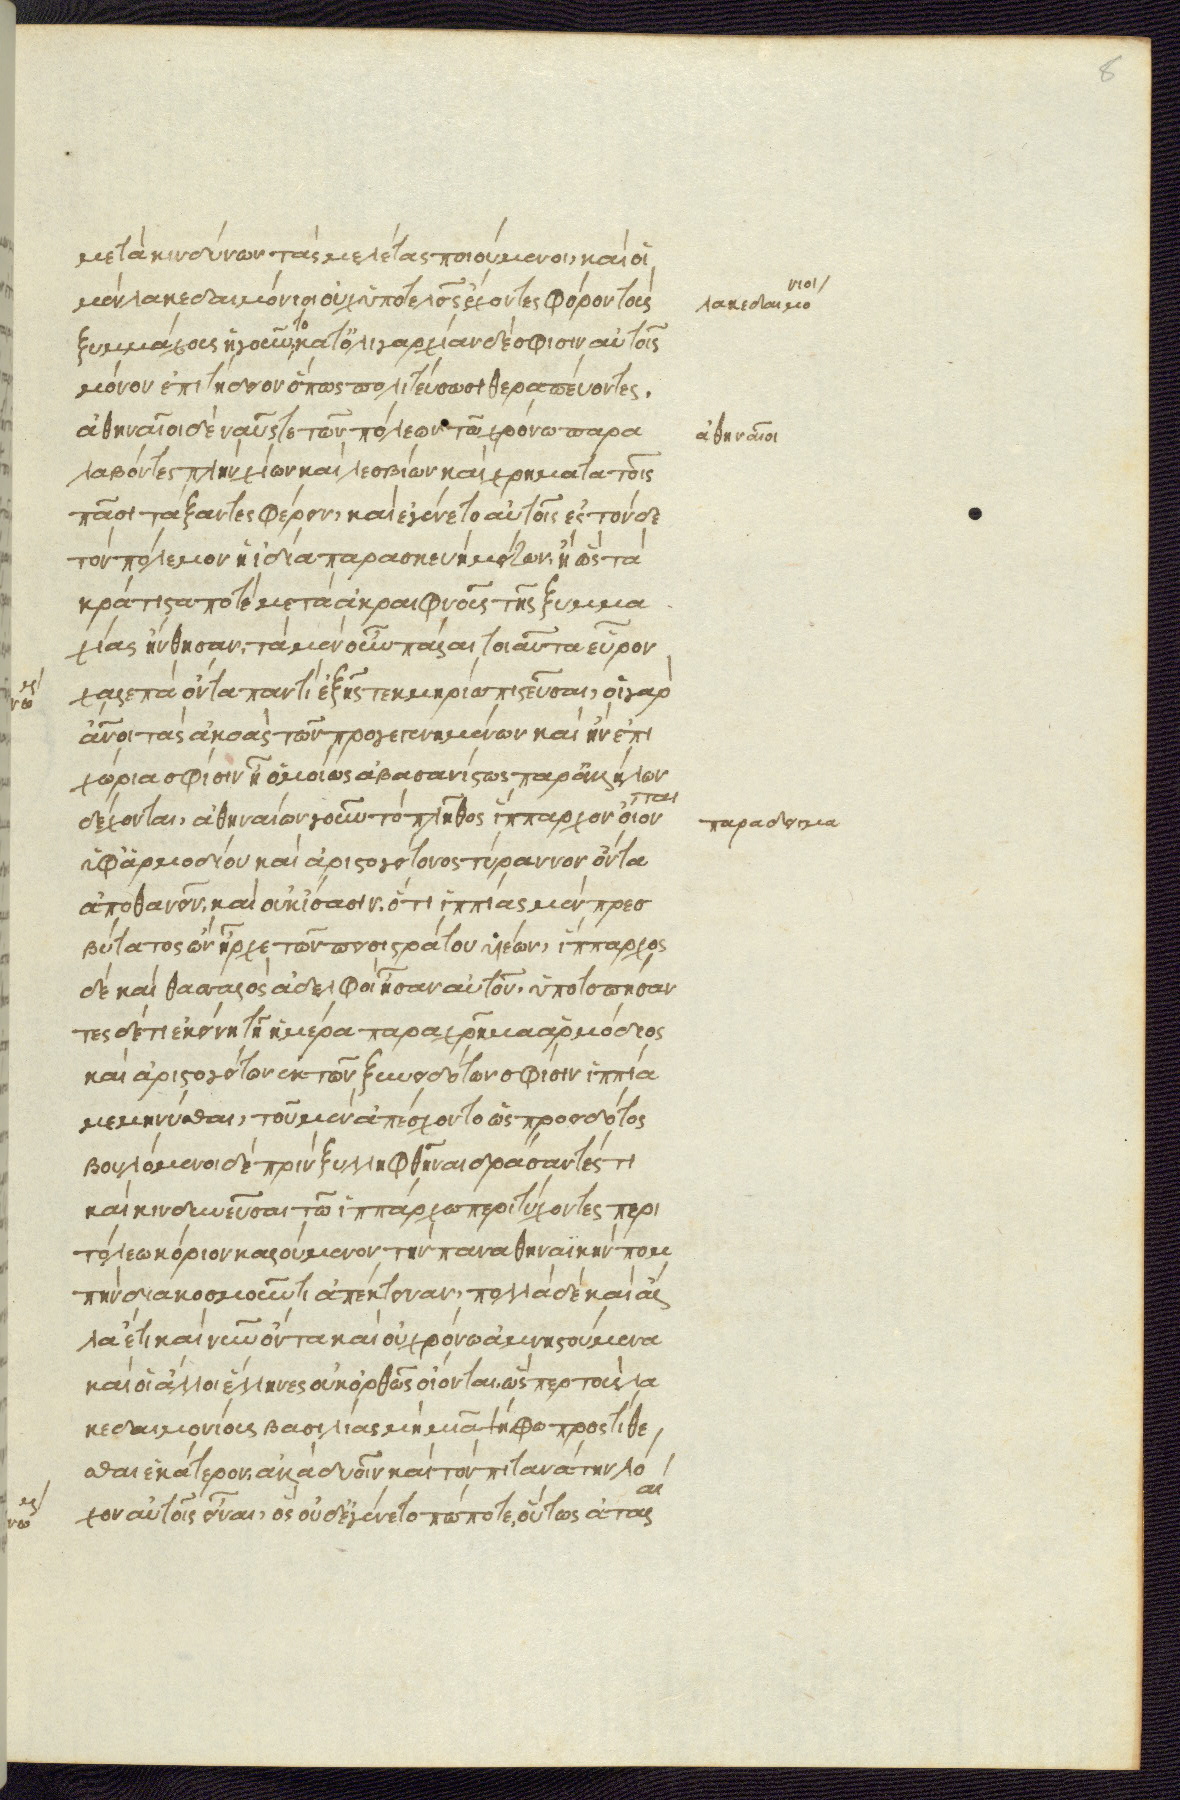 8
μετὰ κινδύνων τὰς μελέτας ποιούμενοι, καὶ οἱ
μὲν λακεδαιμόνιοι οὐχ ὑποτελεῖς ἔχοντες φόρου τοὺς
λακεδαιμόνιοι
ξυμμάχους ἡγοῦντο, κατ' ὀλιγαρχίαν δὲ σφίσιν αὐτοῖς
μόνον ἐπιτήδειον ὅπως πολιτεύσωσι θεραπεύοντες.
ἀθηναῖοι δὲ ναῦς τε τῶν πόλεων τῶ χρόνω παρα
ἀθηναῖοι
λαβόντες πλὴν χίων καὶ λεσβίων καὶ χρήματα τοῖς
πᾶσι τάξαντες φέρειν, καὶ ἐγένετο αὐτοῖς ἐς τόνδε
τὸν πόλεμον ἡ ἰδία παρασκευὴ μείζων, ἢ ὡς τὰ
κράτιστα ποτὲ μετὰ ἀκραιφνοῦς τῆς ξυμμα
χίας ἤνθησαν, τὰ μὲν οὖν παλαι τοιαῦτα εὗρον
χαλεπὰ ὄντα παντὶ ἑξῆς τεκμηρίω πιστεῦσαι, οἱ γὰρ
ἄνοι τὰς ἀκοὰς τῶν προγεγενημένων καὶ ἢν ἐπι
χώρια σφίσιν ἦ ὁμοίως ἀβασανίστως παρ' ἀλλήλων
δέχονται, ἀθηναίων γοῦν τὸ πλῆθος ἵππαρχον οἴονται
παράδειγμα
ὑφ' ἁρμοδίου καὶ ἀριστογείτονος τύραννον ὄντα
ἀποθανεῖν, καὶ οὐκ ἴσασιν, ὅτι ἱππίας μὲν πρεσ
βύτατος ὢν ἦρχε τῶν πεισιστράτου υἱέων, ἵππαρχος
δὲ καὶ θεσσαλὸς ἀδελφοὶ ἦσαν αὐτοῦ, ὑποτοπήσαν
τες δέ τι ἐκείνη τῆ ἡμέρα παραχρῆμα ἁρμόδιος
καὶ ἀριστογείτων ἐκ τῶν ξυνειδότων σφίσιν ἱππία
μεμηνύσθαι, τοῦ μὲν ἀπέσχοντο ὡς προειδότος
βουλόμενοι δὲ πρὶν ξυλληφθῆναι δράσαντές τι
καὶ κινδυνεῦσαι τῶ ἱππάρχω περιτυχόντες περὶ
τὸ λεωκόριον καλούμενον τὴν παναθηναϊκὴν πομ
πὴν διακοσμοῦντι ἀπέκτειναν, πολλὰ δὲ καὶ ἄλ
λα ἔτι καὶ νῦν ὄντα καὶ οὐ χρόνω ἀμνηστούμενα
καὶ οἱ ἄλλοι ἕλληνες οὐκ ὀρθῶς οἴονται, ὥσπερ τοὺς λα
κεδαιμονίους βασιλέας μὴ μιᾶ ψήφω προστίθε
σθαι ἑκάτερον, ἀλλὰ δυοῖν καὶ τὸν πιτανάτην λό
χον αὐτοῖς εἶναι, ὃς οὐδ' ἐγένετο πώποτε, οὕτως ἀταλαι